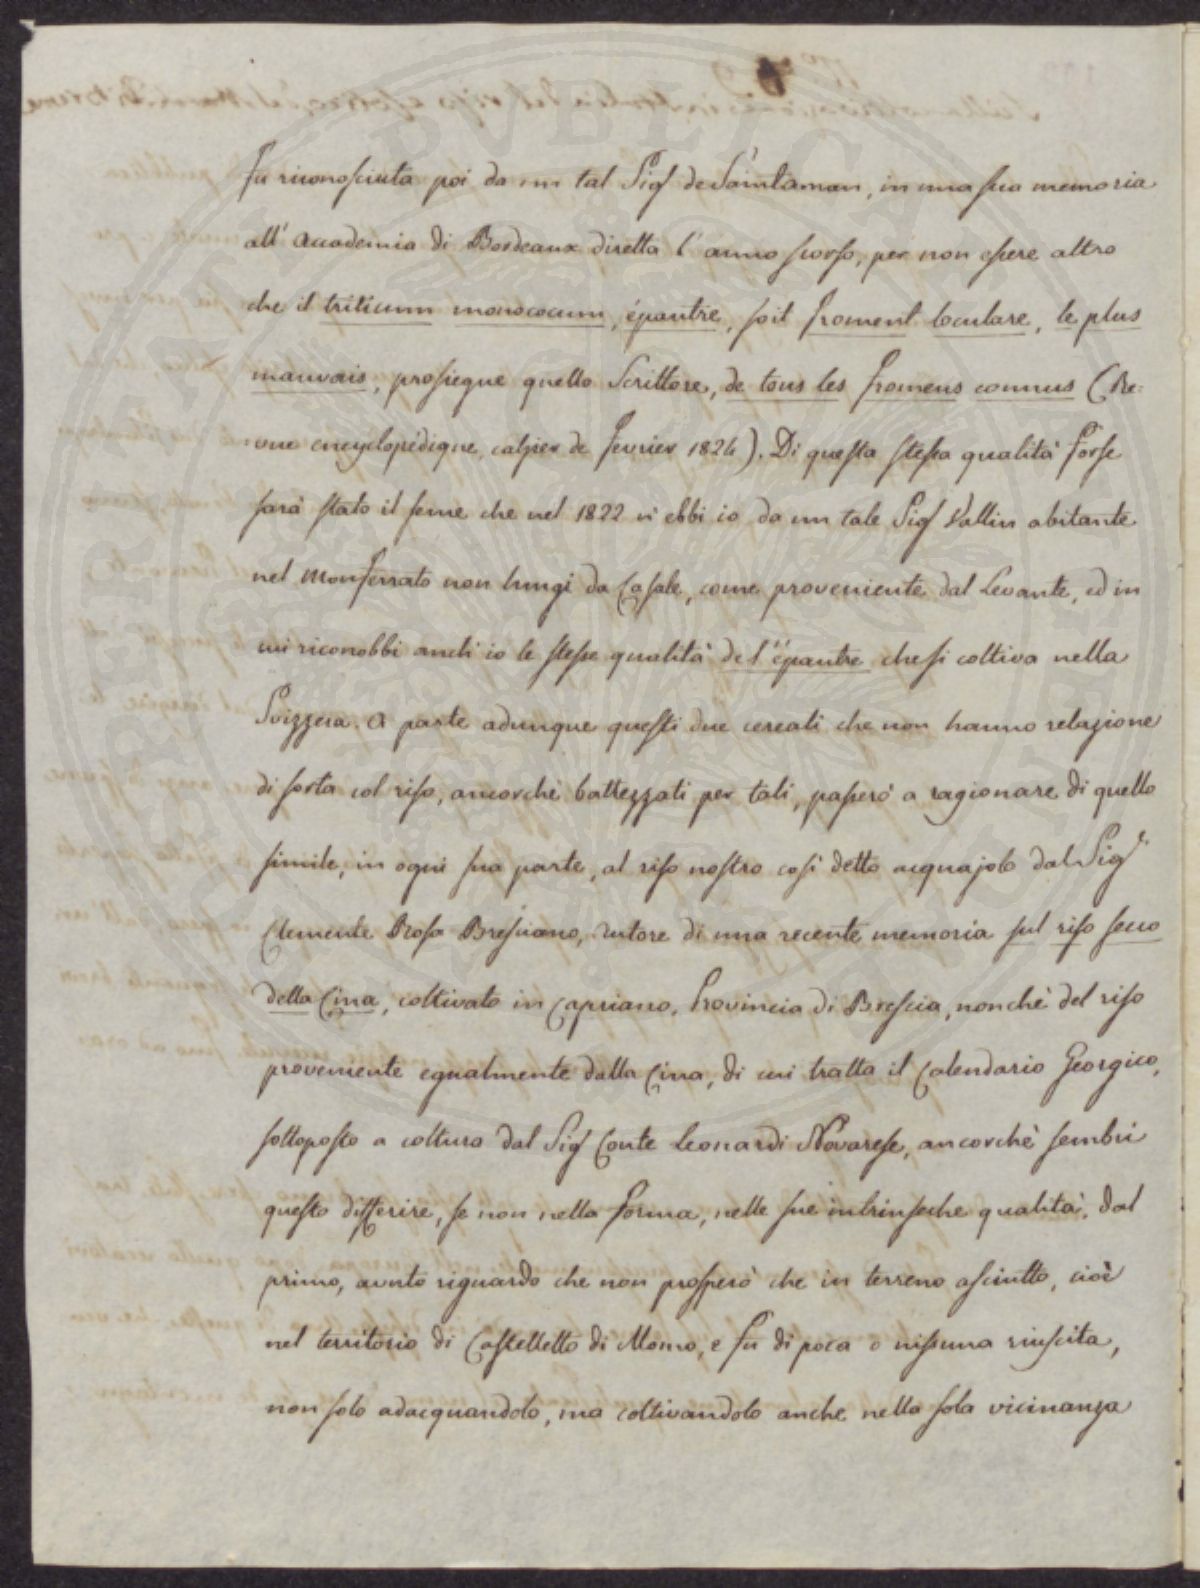 fu riconosciuta poi da un tal Sig.r de Saintaman, in una sua memoria
all' Accademia di Bordeaux diretta l'anno scorso, per non essere altro
che il triticum monococcum, épautre, soit froment loculare, le plus
mauvais, prosiegue quello Scrittore, de tous les fromens connus (Re=
vue encyclopédique, cahier de fevrier 1824). Di questa stessa qualità forse
sarà stato il seme che nel 1822 n'ebbi io da un tale Sig.r Vallin abitante
nel Monferrato non lungi da Casale, come proveniente dal Levante, ed in
cui riconobbi anch' io le stesse qualità del l'épautre che si coltiva nella
Svizzera. A parte adunque questi due cereali che non hanno relazione
di sorta col riso, ancorchè battezzati per tali, passerò a ragionare di quello
simile, in ogni sua parte, al riso nostro così detto acquajolo dal Sig.r
Clemente Rosa Bresciano, autore di una recente memoria sul riso secco
della Cina, coltivato in Capriano, Provincia di Brescia, nonchè del riso
proveniente egualmente dalla Cina, di cui tratta il Calendario Georgico,
sottoposto a coltura dal Sig.r Conte Leonardi Novarese, ancorchè sembri
questo differire, se non nella forma, nelle sue intrinseche qualità, dal
primo, avuto riguardo che non prosperò che in terreno asciutto, cioè
nel territorio di Castelletto di Momo, e fu di poca o nissuna riuscita,
non solo adacquandolo, ma coltivandolo anche nella sola vicinanza